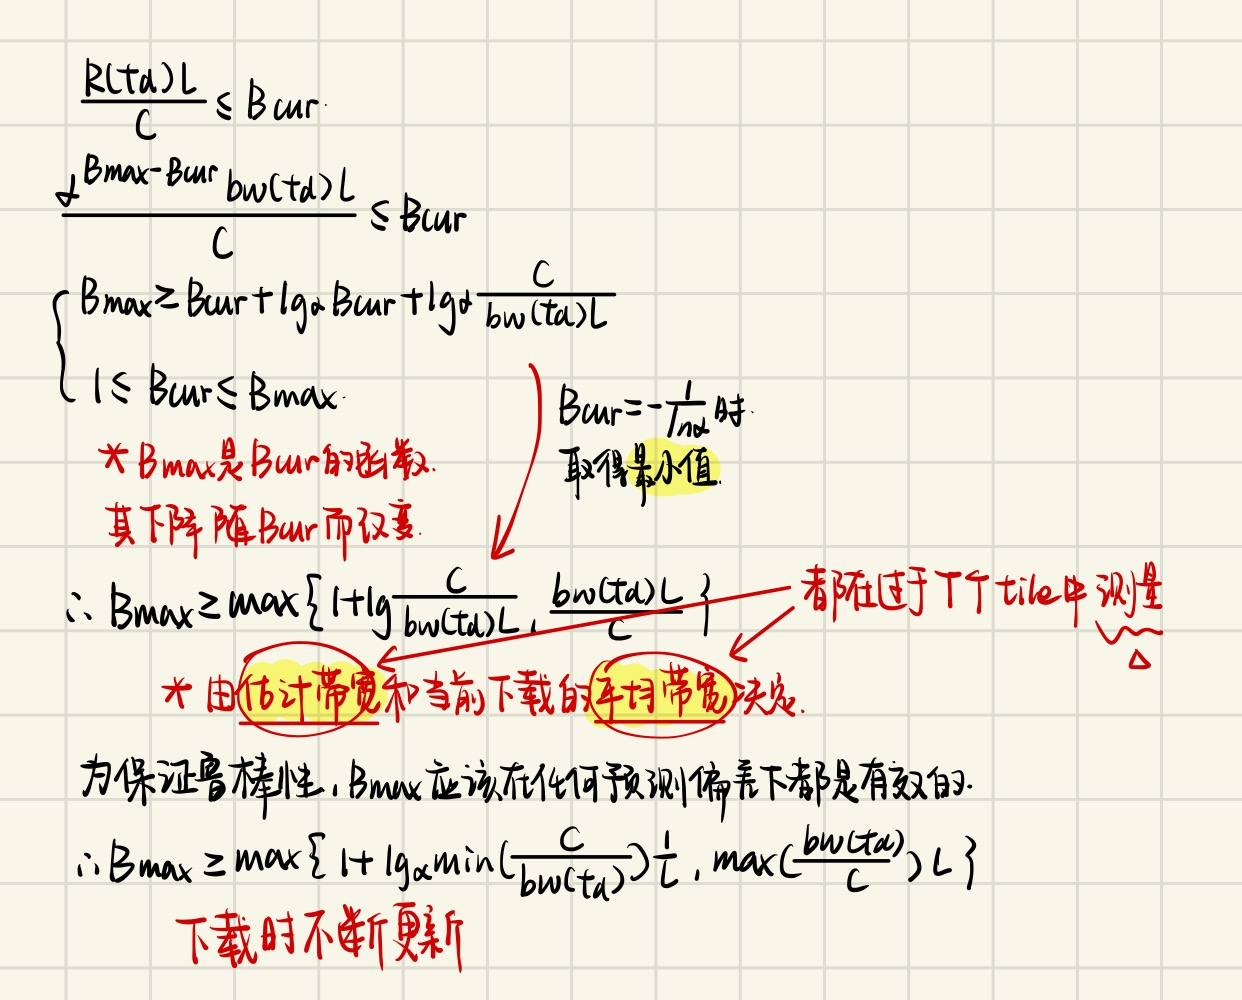 R(td)L / C ≤ Bcur.
α^(Bmax-Bcur) bw(td)L / C ≤ Bcur
{ Bmax ≥ Bcur + lgα Bcur + lgα C / bw(td)L
1 ≤ Bcur ≤ Bmax.
Bcur = - 1 / lnα 时.
取得最小值.
* Bmax是Bcur的函数.
其下降随Bcur而改变.
∴ Bmax ≥ max{ 1+lg C / bw(td)L , bw(td)L / C }
都在过于T个tile中测量
△
* 由估计带宽和当前下载的平均带宽决定.
为保证鲁棒性,Bmax应该在任何预测偏差下都是有效的.
∴ Bmax ≥ max{ 1 + lgα min( C / bw(td) ) 1 / L , max( bw(td) / C ) L }
下载时不断更新